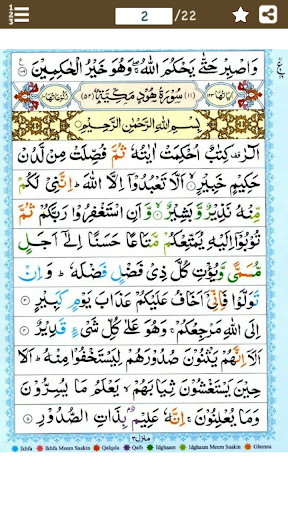 2 /22
وَاصْبِرْ حَتّٰى يَحْكُمَ اللّٰهُ ۖۚ وَهُوَ خَيْرُ الْحٰكِمِيْنَ
سُوْرَةُ هُوْدٍ مَكِّيَّةٌ
بِسْمِ اللّٰهِ الرَّحْمٰنِ الرَّحِيْمِ
الٓرٰ ۫ كِتٰبٌ اُحْكِمَتْ اٰيٰتُهٗ ثُمَّ فُصِّلَتْ مِنْ لَّدُنْ
حَكِيْمٍ خَبِيْرٍ ۙ اَلَّا تَعْبُدُوْۤا اِلَّا اللّٰهَ ؕ اِنَّنِيْ لَكُمْ
مِّنْهُ نَذِيْرٌ وَّبَشِيْرٌ ۙ وَّاَنِ اسْتَغْفِرُوْا رَبَّكُمْ ثُمَّ
تُوْبُوْۤا اِلَيْهِ يُمَتِّعْكُمْ مَّتَاعًا حَسَنًا اِلٰۤى اَجَلٍ
مُّسَمًّى وَّيُؤْتِ كُلَّ ذِيْ فَضْلٍ فَضْلَهٗ ؕ وَاِنْ
تَوَلَّوْا فَاِنِّيْۤ اَخَافُ عَلَيْكُمْ عَذَابَ يَوْمٍ كَبِيْرٍ
اِلَى اللّٰهِ مَرْجِعُكُمْ ۚ وَهُوَ عَلٰى كُلِّ شَيْءٍ قَدِيْرٌ
اَلَاۤ اِنَّهُمْ يَثْنُوْنَ صُدُوْرَهُمْ لِيَسْتَخْفُوْا مِنْهُ ؕ اَلَا
حِيْنَ يَسْتَغْشُوْنَ ثِيَابَهُمْ ۙ يَعْلَمُ مَا يُسِرُّوْنَ
وَمَا يُعْلِنُوْنَ ۚ اِنَّهٗ عَلِيْمٌۢ بِذَاتِ الصُّدُوْرِ
منزل ٣
Ikhfa Ikhfa Meem Saakin Qalqala Qalb Idghaam Idghaam Meem Saakin Ghunna